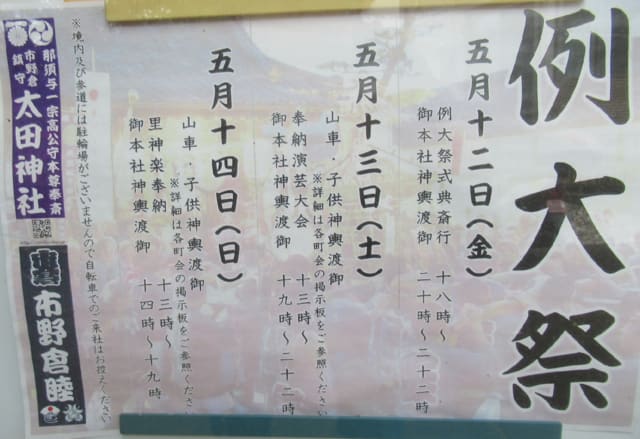 例大祭
五月十二日（金）
例大祭式典斎行　十八時～
御本社神輿渡御　二十時～二十二時
五月十三日（土）
山車・子供神輿渡御
※詳細は各町会の掲示板をご参照ください
奉納演芸大会　十三時～
御本社神輿渡御　十九時～二十二時
五月十四日（日）
山車・子供神輿渡御
※詳細は各町会の掲示板をご参照ください
里神楽奉納　十三時～
御本社神輿渡御　十四時～十九時
※境内及び参道には駐輪場がございませんので自転車でのご来社はお控えください
那須与一宗高公守本尊奉斎
市野倉鎮守
太田神社
市野倉睦